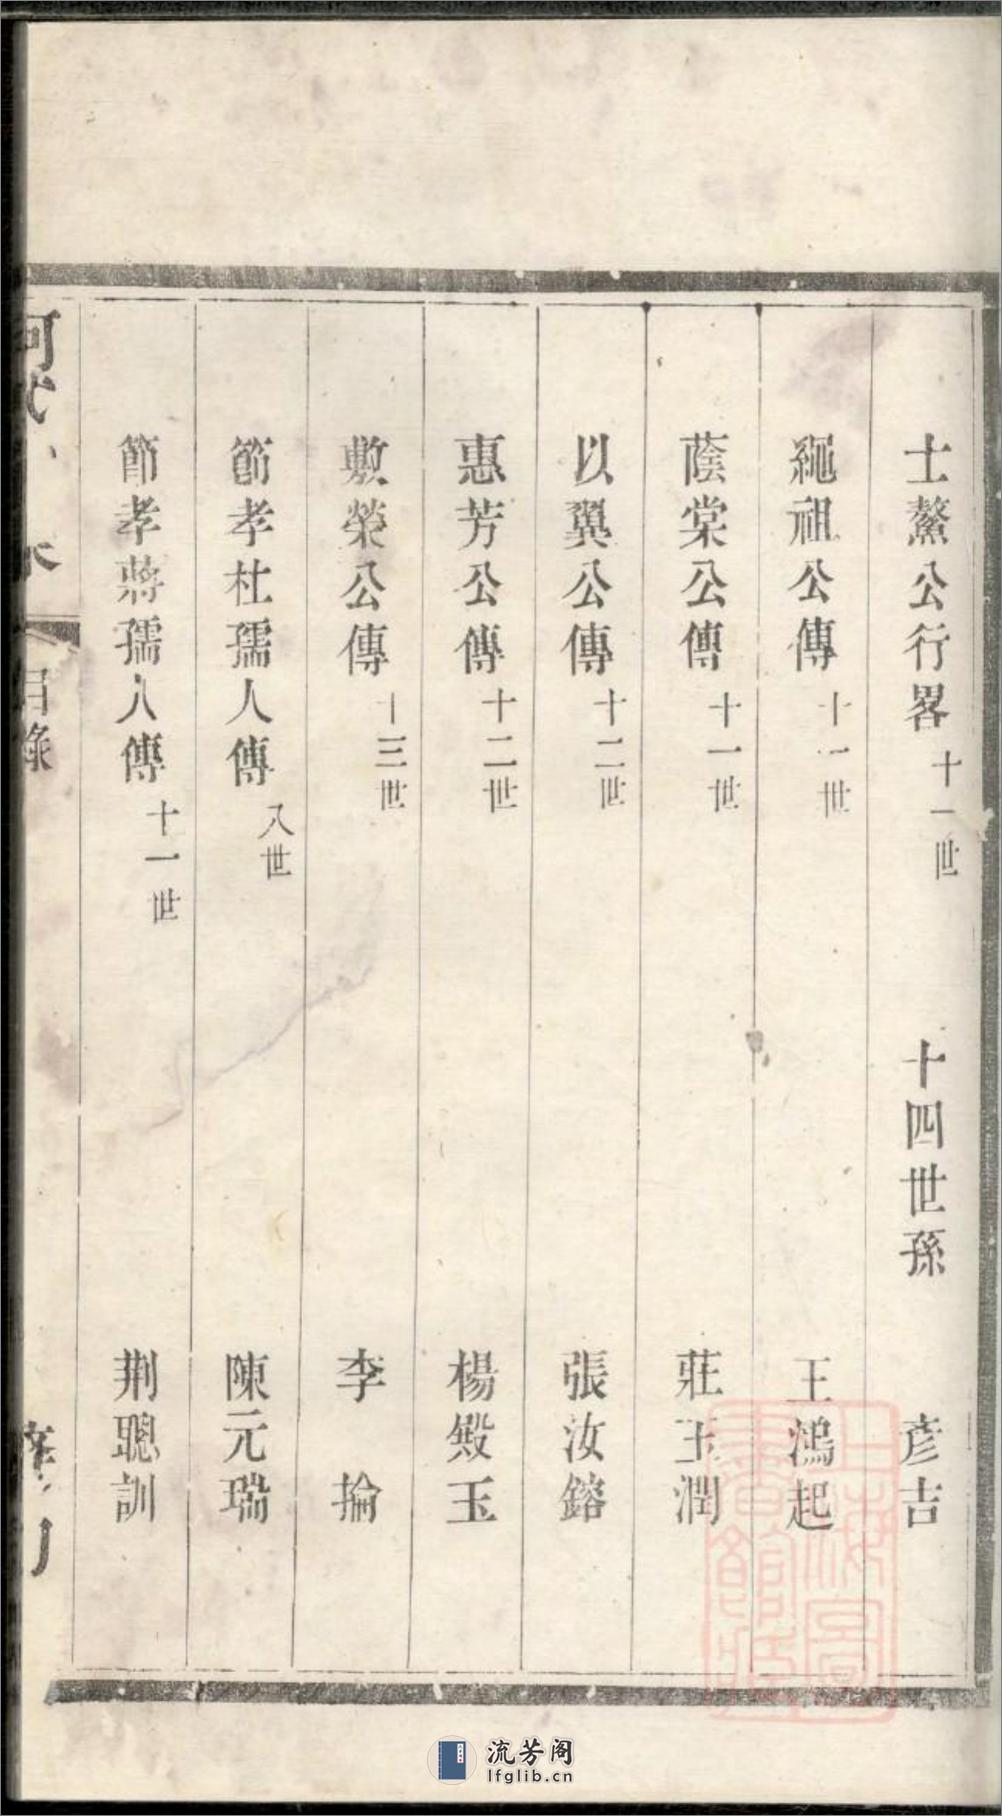 士鰲公行畧 十一世 十四世孫 彥吉
繩祖公傳 十一世 王鴻起
蔭棠公傳 十一世 莊玉潤
以翼公傳 十二世 張汝鎔
惠芳公傳 十二世 楊殿玉
敷榮公傳 十三世 李掄
節孝杜孺人傳 八世 陳元瑞
節孝蔣孺人傳 十一世 荆聰訓
目錄
上海圖書館藏
流芳阁
lfglib.cn